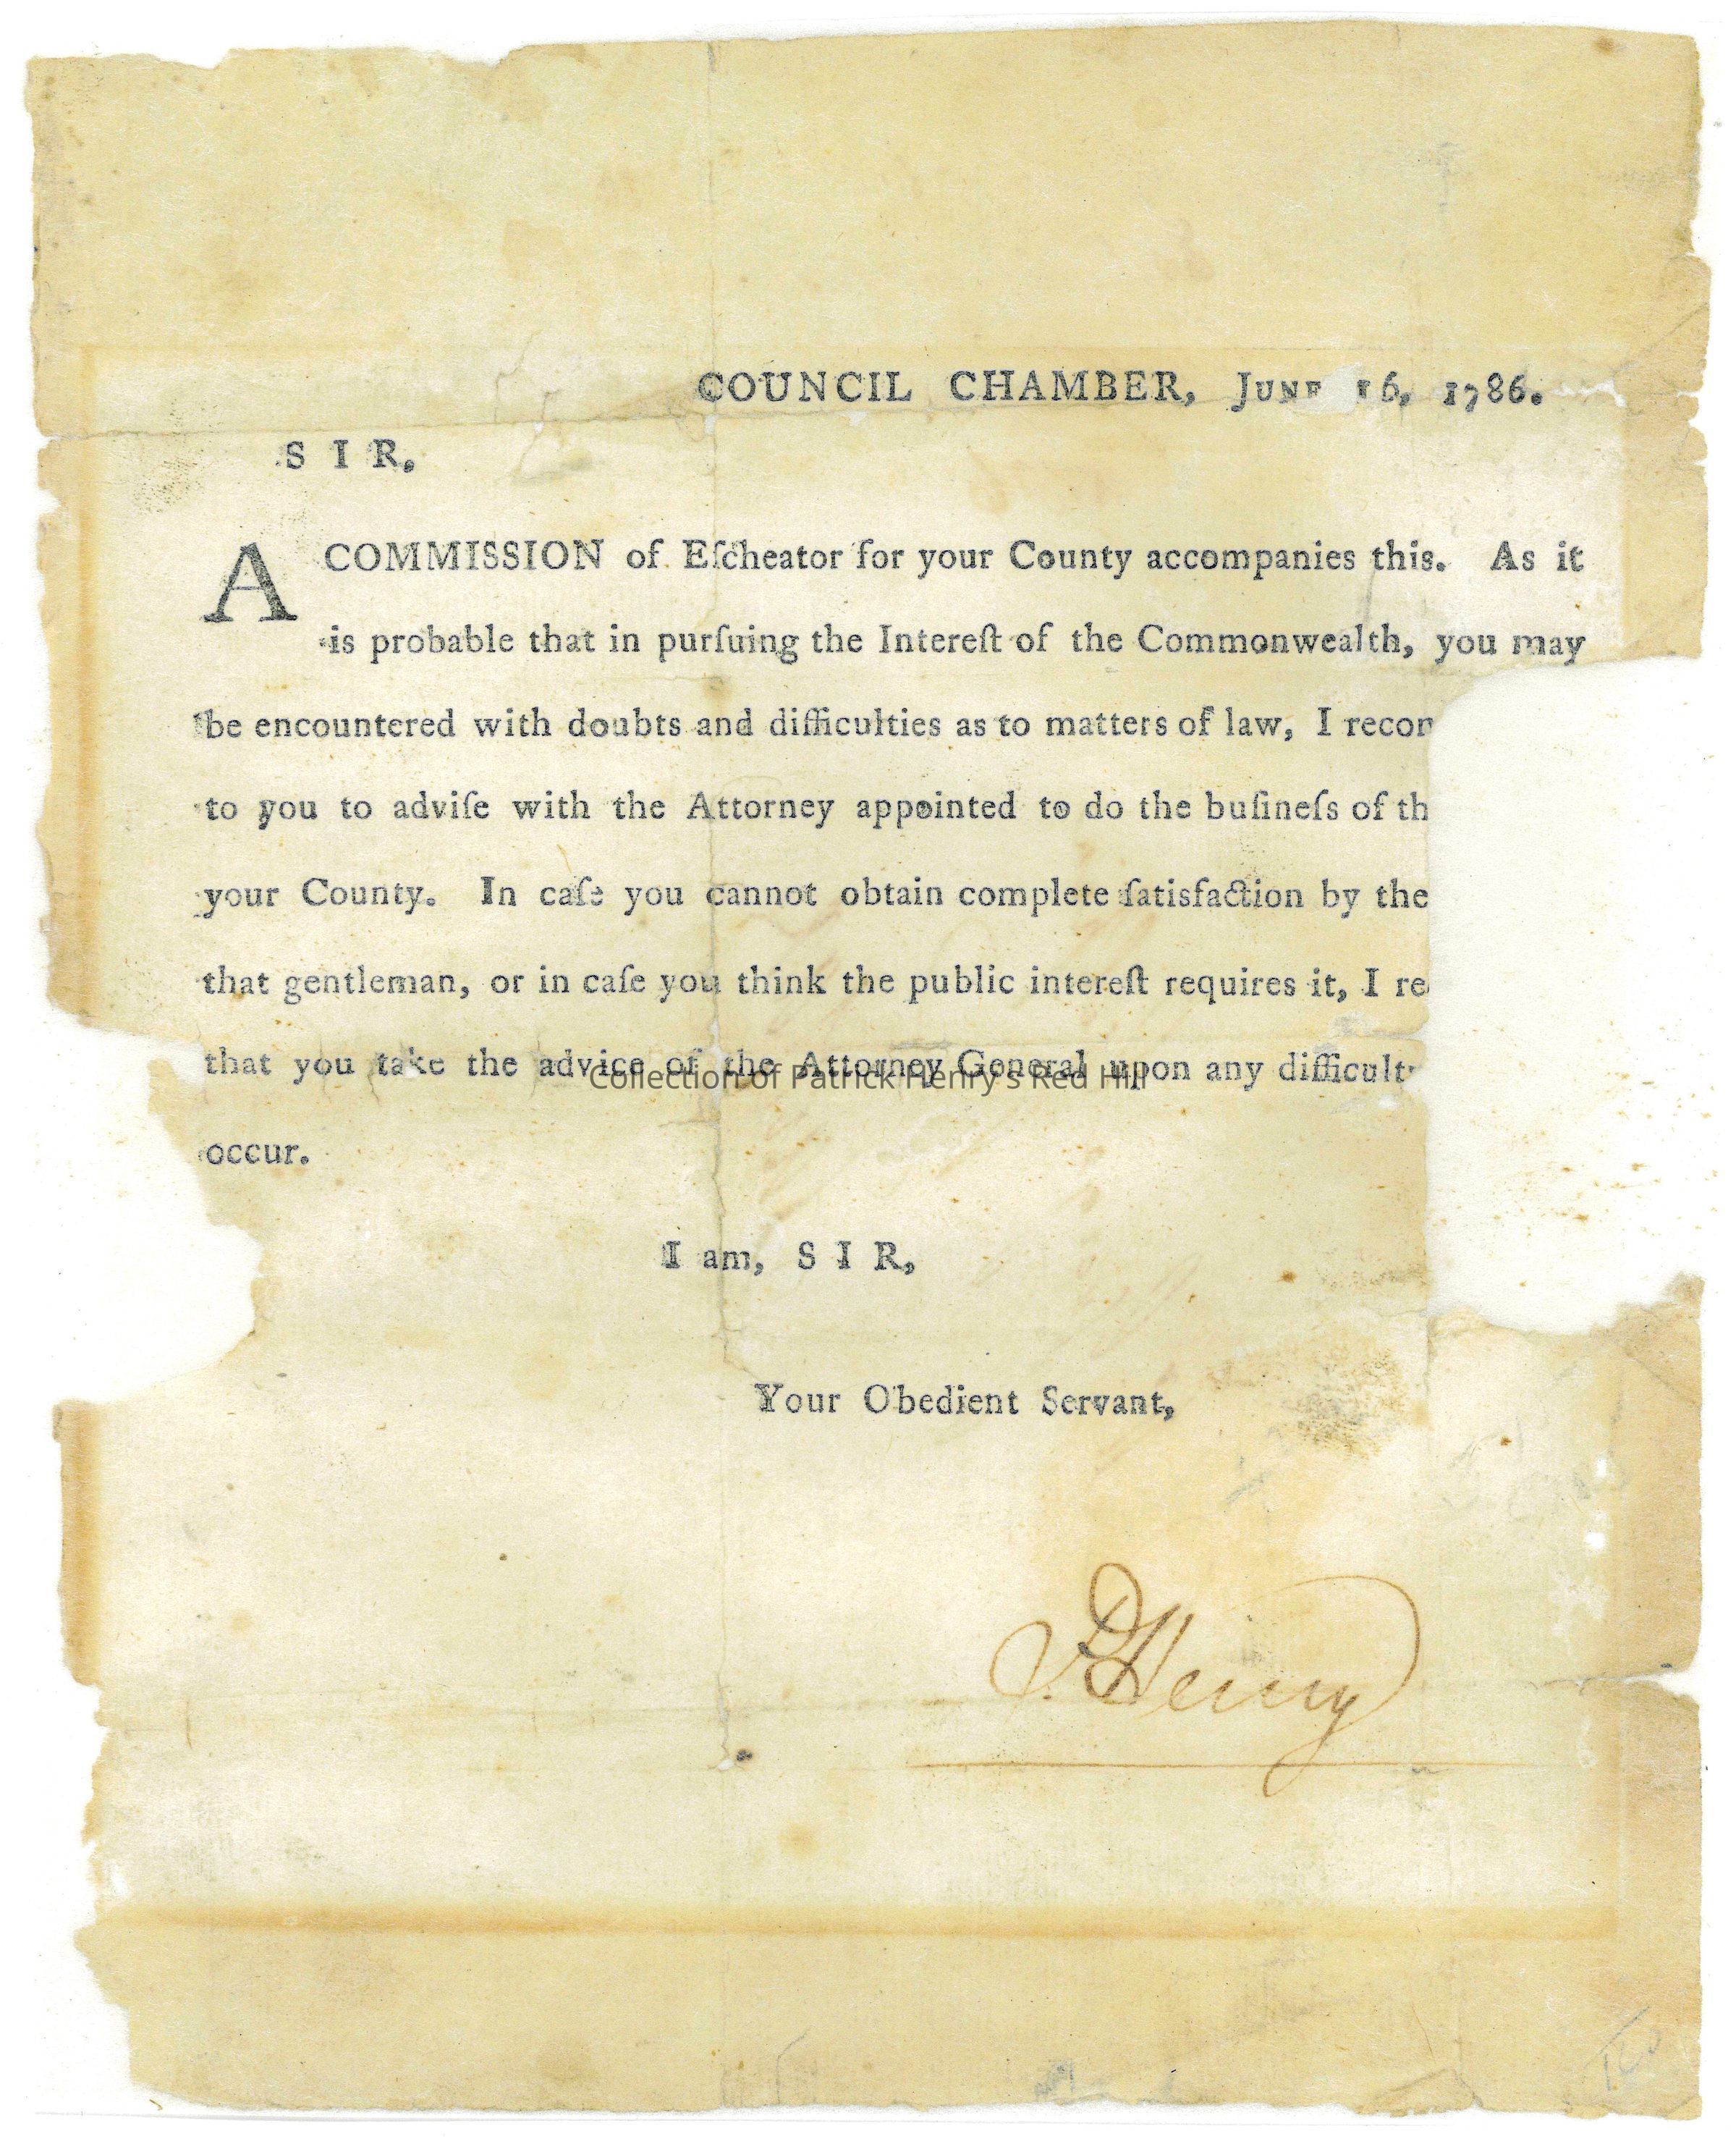 COUNCIL CHAMBER, JUNE 16, 1786.
SIR.
A COMMISSION of Eſcheator for your County accompanies this. As it
is probable that in purſuing the Intereſt of the Commonwealth, you may
be encountered with doubts and difficulties as to matters of law, I recom
to you to adviſe with the Attorney appointed to do the buſineſs of th
your County. In caſe you cannot obtain complete ſatisfaction by the
that gentleman, or in caſe you think the public intereſt requires it, I re
that you take the advice of the Attorney General upon any difficult
Collection of Patrick Henry's Red Hill
occur.
I am, SIR,
Your Obedient Servant,
P. Henry